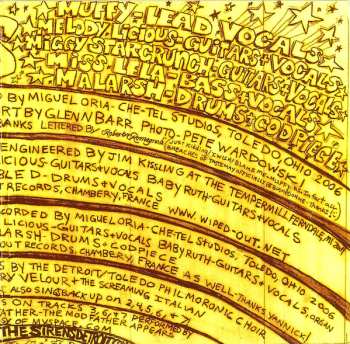 MUFFY-LEAD VOCALS
MELODY LICIOUS-GUITARS+VOCALS
MIGGY STAR CRUNCH-GUITARS+VOCALS
MISS LELA-BASS+VOCALS
MALARSH-DRUMS+CODPIECE
D BY MIGUEL ORIA-CHE-TEL STUDIOS, TOLEDO, OHIO 2006
ART BY GLENN BARR PHOTO-PETE WARDOWSK
RANKS LETTERED BY
ENGINEERED BY JIM KISSLING AT THE TEMPERMILL FERNDALE MI.
LICIOUS-GUITARS+VOCALS BABY RUTH-GUITARS+VOCALS
BLE D-DRUMS+VOCALS
T RECORDS, CHAMBERY, FRANCE WWW.WIPED-OUT.NET
ORDED BY MIGUEL ORIA-CHE-TEL STUDIOS, TOLEDO, OHIO 2006
LICIOUS-GUITARS+VOCALS BABY RUTH-GUITARS+VOCALS, ORGAN
LARSH-DRUMS+CODPIECE
OUT RECORDS, CHAMBERY, FRANCE AS WELL. THANKS YANNICK!
S BY THE DETROIT/TOLEDO PHILMORONIC CHOIR
RY VELOUR+THE SCREAMING ITALIAN
ALSO SINGS BACK UP ON 2,4,5,6,+7
S ON TRACKS 2,6,+7 PERFORMED BY
FATHER-THE MOD FATHER APPEARS
OF MYSPACE.COM
THE SIRENS DETROIT